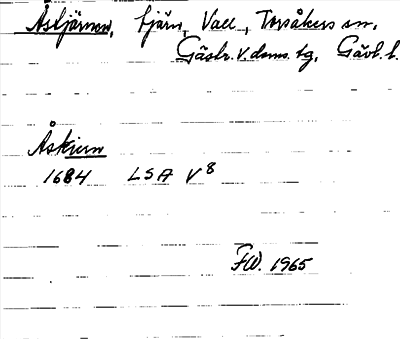 Åstjärnen, tjärn, Vall, Torsåkers sn,
Gästr. V. doms. tg, Gävl. l.
Åskiern
1684 LSA V8
FW. 1965